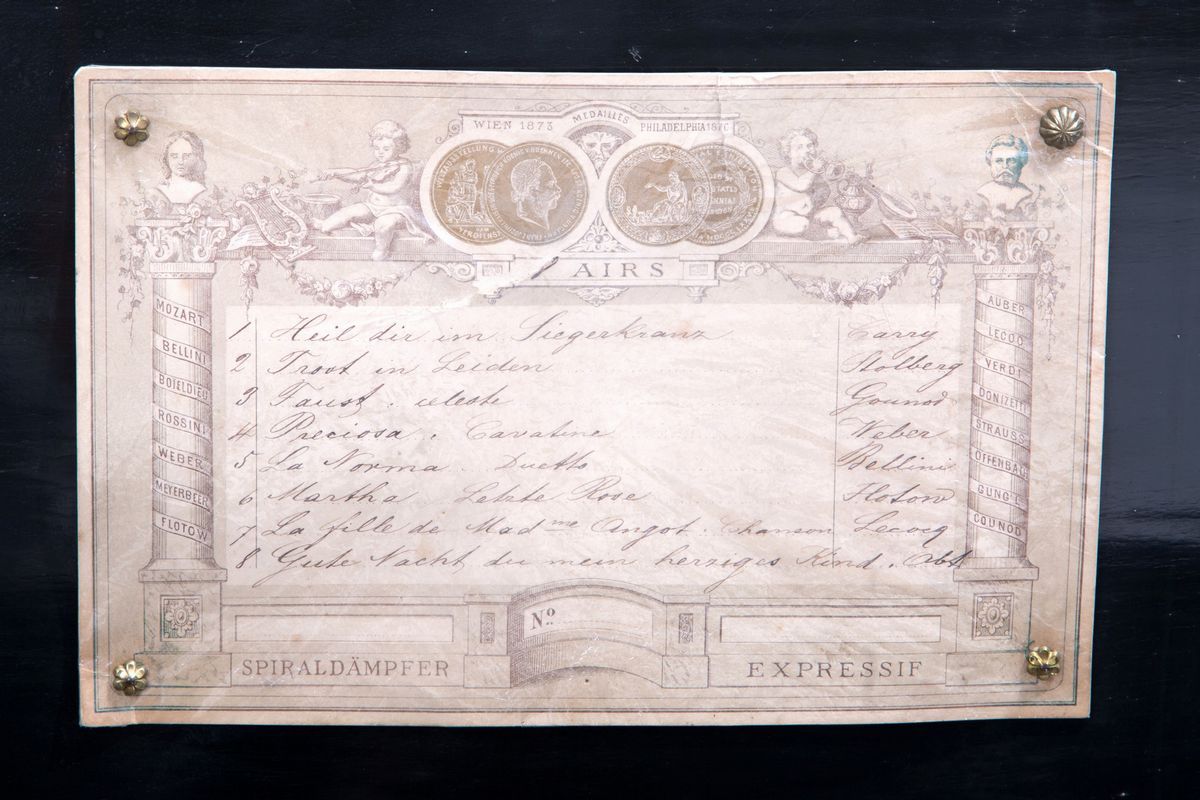 WIEN 1873 MEDAILLES PHILADELPHIA 1876
8 AIRS
MOZART
BELLINI
BOIELDIEU
ROSSINI
WEBER
MEYERBEER
FLOTOW
1 Heil dir im Siegerkranz Carry
2 Trost in Leiden Stolberg
3 Faust. celeste Gounod
4 Preciosa. Cavatine Weber
5 La Norma. Duetto Bellini
6 Martha Letzte Rose Flotow
7 La fille de Madme Angot. Chanson Lecocq
8 Gute Nacht du mein herziges Kind. Abt
AUBER
LECOQ
VERDI
DONIZETTI
STRAUSS
OFFENBACH
GUNG'L
GOUNOD
No.
SPIRALDÄMPFER
EXPRESSIF